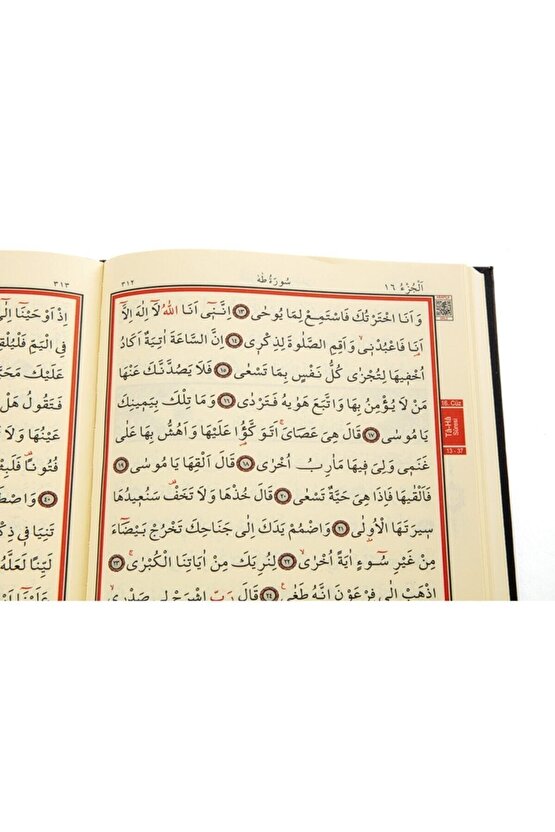 اَلْجُزْءُ ١٦
سُورَةُ طٰهٰ
٣١٢
وَاَنَا اخْتَرْتُكَ فَاسْتَمِعْ لِمَا يُوحٰى ﴿١٣﴾ اِنَّنٖٓي اَنَا اللّٰهُ لَٓا اِلٰهَ اِلَّٓا
اَنَا فَاعْبُدْنٖي وَاَقِمِ الصَّلٰوةَ لِذِكْرٖي ﴿١٤﴾ اِنَّ السَّاعَةَ اٰتِيَةٌ اَكَادُ
اُخْفٖيهَا لِتُجْزٰى كُلُّ نَفْسٍ بِمَا تَسْعٰى ﴿١٥﴾ فَلَا يَصُدَّنَّكَ عَنْهَا
مَنْ لَا يُؤْمِنُ بِهَا وَاتَّبَعَ هَوٰيهُ فَتَرْدٰى ﴿١٦﴾ وَمَا تِلْكَ بِيَمٖينِكَ
يَا مُوسٰى ﴿١٧﴾ قَالَ هِيَ عَصَايَۚ اَتَوَكَّؤُ۬ا عَلَيْهَا وَاَهُشُّ بِهَا عَلٰى
غَنَمٖي وَلِيَ فٖيهَا مَاٰرِبُ اُخْرٰى ﴿١٨﴾ قَالَ اَلْقِهَا يَا مُوسٰى ﴿١٩﴾
فَاَلْقٰيهَا فَاِذَا هِيَ حَيَّةٌ تَسْعٰى ﴿٢٠﴾ قَالَ خُذْهَا وَلَا تَخَفْ۠ سَنُعٖيدُهَا
سٖيرَتَهَا الْاُو۫لٰى ﴿٢١﴾ وَاضْمُمْ يَدَكَ اِلٰى جَنَاحِكَ تَخْرُجْ بَيْضَٓاءَ
مِنْ غَيْرِ سُٓوءٍ اٰيَةً اُخْرٰى ﴿٢٢﴾ لِنُرِيَكَ مِنْ اٰيَاتِنَا الْكُبْرٰى ﴿٢٣﴾
اِذْهَبْ اِلٰى فِرْعَوْنَ اِنَّهُ طَغٰى ﴿٢٤﴾ قَالَ رَبِّ اشْرَحْ لٖي صَدْرٖي
16. Cüz
Tâ-Hâ
Sûresi
13 - 37
٣١٣
اِذْ اَوْحَيْنَٓا اِلٰٓى
فِي الْيَمِّ فَلْيُلْقِهِ
عَلَيْكَ مَحَبَّ
فَتَقُولُ هَلْ
عَيْنُهَا وَلَا
فُتُونًا فَلَبِثْ
﴿٤٠﴾ وَاصْطَ
تَنِيَا فٖي ذِكْ
لَيِّنًا لَعَلَّهُ
عَلَيْنَٓا